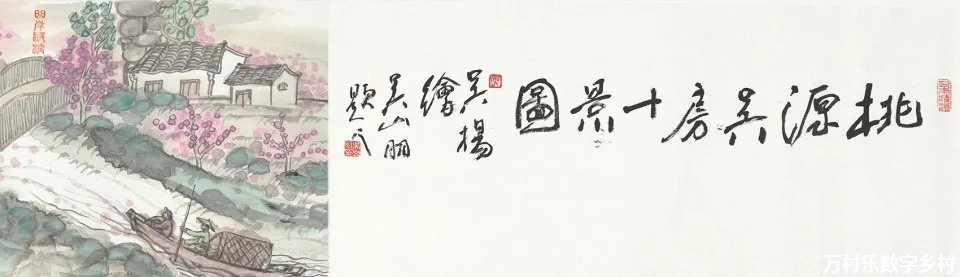 桃源吴房十景圖
吴楊
繪
吴山丽
题
万村乐数字乡村